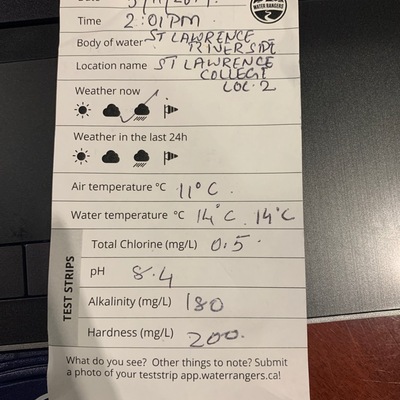 WATER RANGERS
Time 2:01PM.
Body of water ST LAWRENCE
RIVERSIDE
Location name ST LAWRENCE
COLLEGE
LOC. 2
Weather now
Weather in the last 24h
Air temperature °C 11°C.
Water temperature °C 14°C 14°C
TEST STRIPS
Total Chlorine (mg/L) 0.5.
pH 8.4
Alkalinity (mg/L) 180
Hardness (mg/L) 200.
What do you see? Other things to note? Submit
a photo of your teststrip app.waterrangers.ca!